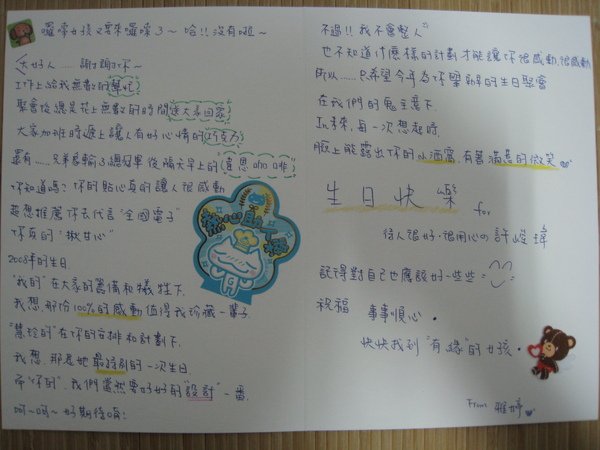 囉嗦女孩又要來囉嗦了~ 哈!!沒有啦~
大好人......謝謝你~
工作上給我無數的幫忙
聚會後總是花上無數的時間送大家回家
大家加班時遞上讓人有好心情的巧克力
還有......兄弟象輸了總冠軍後隔天早上的
你知道嗎? 你的貼心真的讓人很感動
超想推薦你去代言"全國電子"
你真的"揪甘心"
2008年的生日
"我的"在大家的籌備和犧牲下
我想那份100%的感動值得我珍藏一輩子
"慧玲的"在你的安排和計劃下
我想, 那是她最特別的一次生日
而"你的", 我們當然要好好的"設計"一番
呵~呵~好期待唷!
熱心助人
不過!! 我不會整人
也不知道什麼樣的計劃才能讓你很感動,很感動
所以......只希望今年為你舉辦的生日聚會
在我們的鬼主意下
在未來, 每一次想起時
臉上能露出你的小酒窩, 有著滿意的微笑
生日快樂
for
待人很好、很用心の 許峻瑋
記得對自己也應該好一些些
祝福 事事順心。
快快找到"有緣"的女孩。
From 雅婷